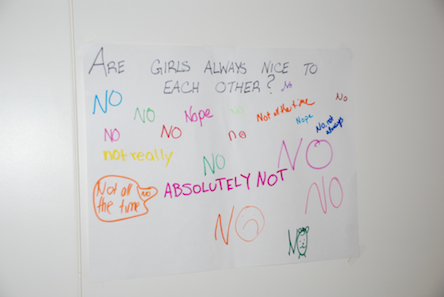 ARE GIRLS ALWAYS NICE TO
EACH OTHER?
No
NO
NO
Nope
NO
Not all the time
No
Nope
No, not
always
NO
NO
no
not really
NO
NO
Not all
the time
no
ABSOLUTELY NOT
NO
NO
NO